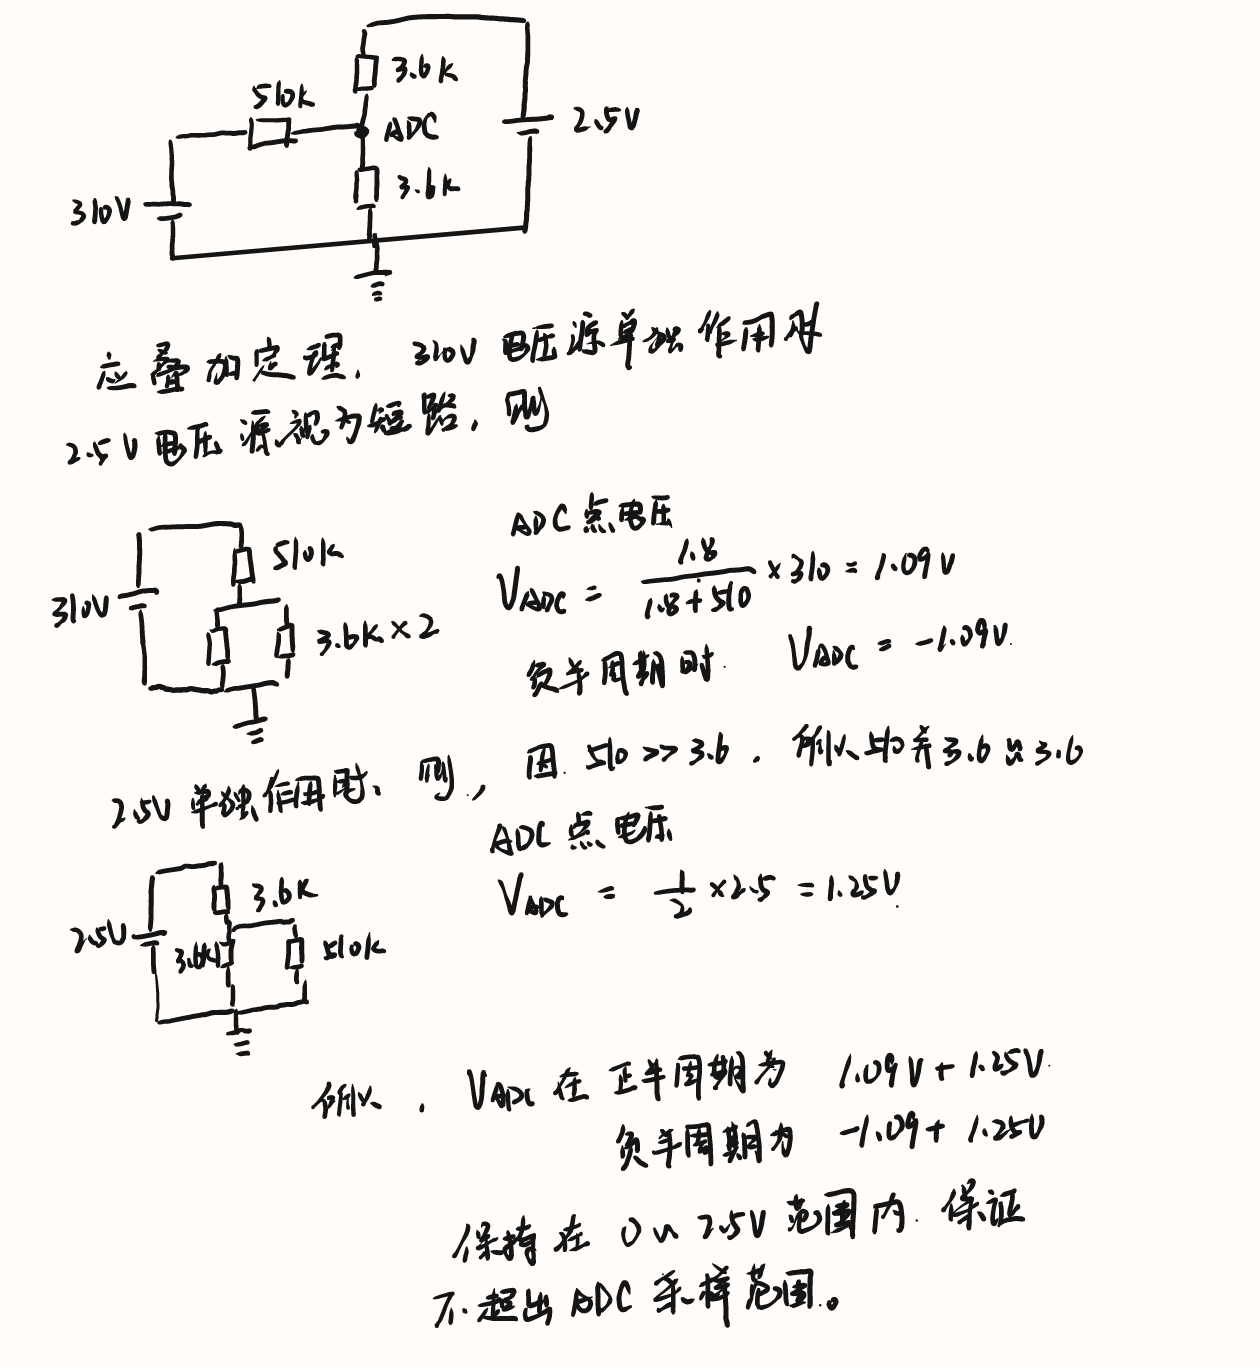 3.6K
510K
ADC
2.5V
3.6K
310V
应叠加定理. 310V 电压源单独作用时
2.5V 电压源视为短路, 则
ADC 点电压
510K
V_ADC = 1.8/(1.8+510) × 310 = 1.09V
310V
3.6K×2
负半周期时 V_ADC = -1.09V
2.5V 单独作用时、则, 因 510 >> 3.6 . 所以 并 3.6 ≈ 3.6
ADC 点电压
3.6K
V_ADC = 1/2 ×2.5 = 1.25V
2.5V
3.6K
510K
所以 , V_ADC 在正半周期为 1.09V + 1.25V
负半周期为 -1.09+ 1.25V
保持在 0~2.5V 范围内. 保证
不超出 ADC 采样范围。